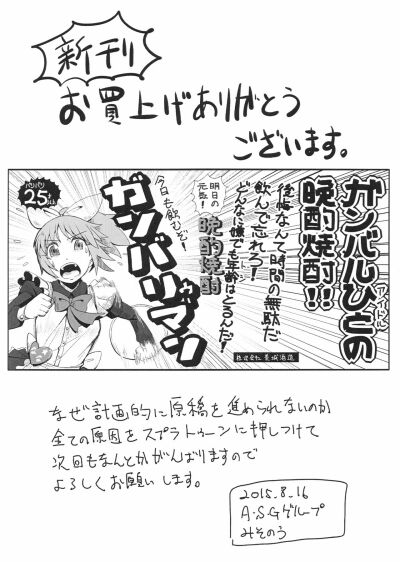 新刊
お買上げありがとう
ございます。
ガンバルひとの
アイドル
晩酌焼酎!!
後悔なんて時間の無駄だ
飲んで忘れろ!
どんなに嫌でも年齢はとるんだ!
明日の
元気!
晩酌焼酎
今日も飲むぞ!
ガンバリマン
25
なぜ計画的に原稿を進められないのか
全ての原因をスプラトゥーンに押しつけて
次回もなんとかがんばりますので
よろしくお願いします。
2015.8.16
A・S・Gグループ
みそのう